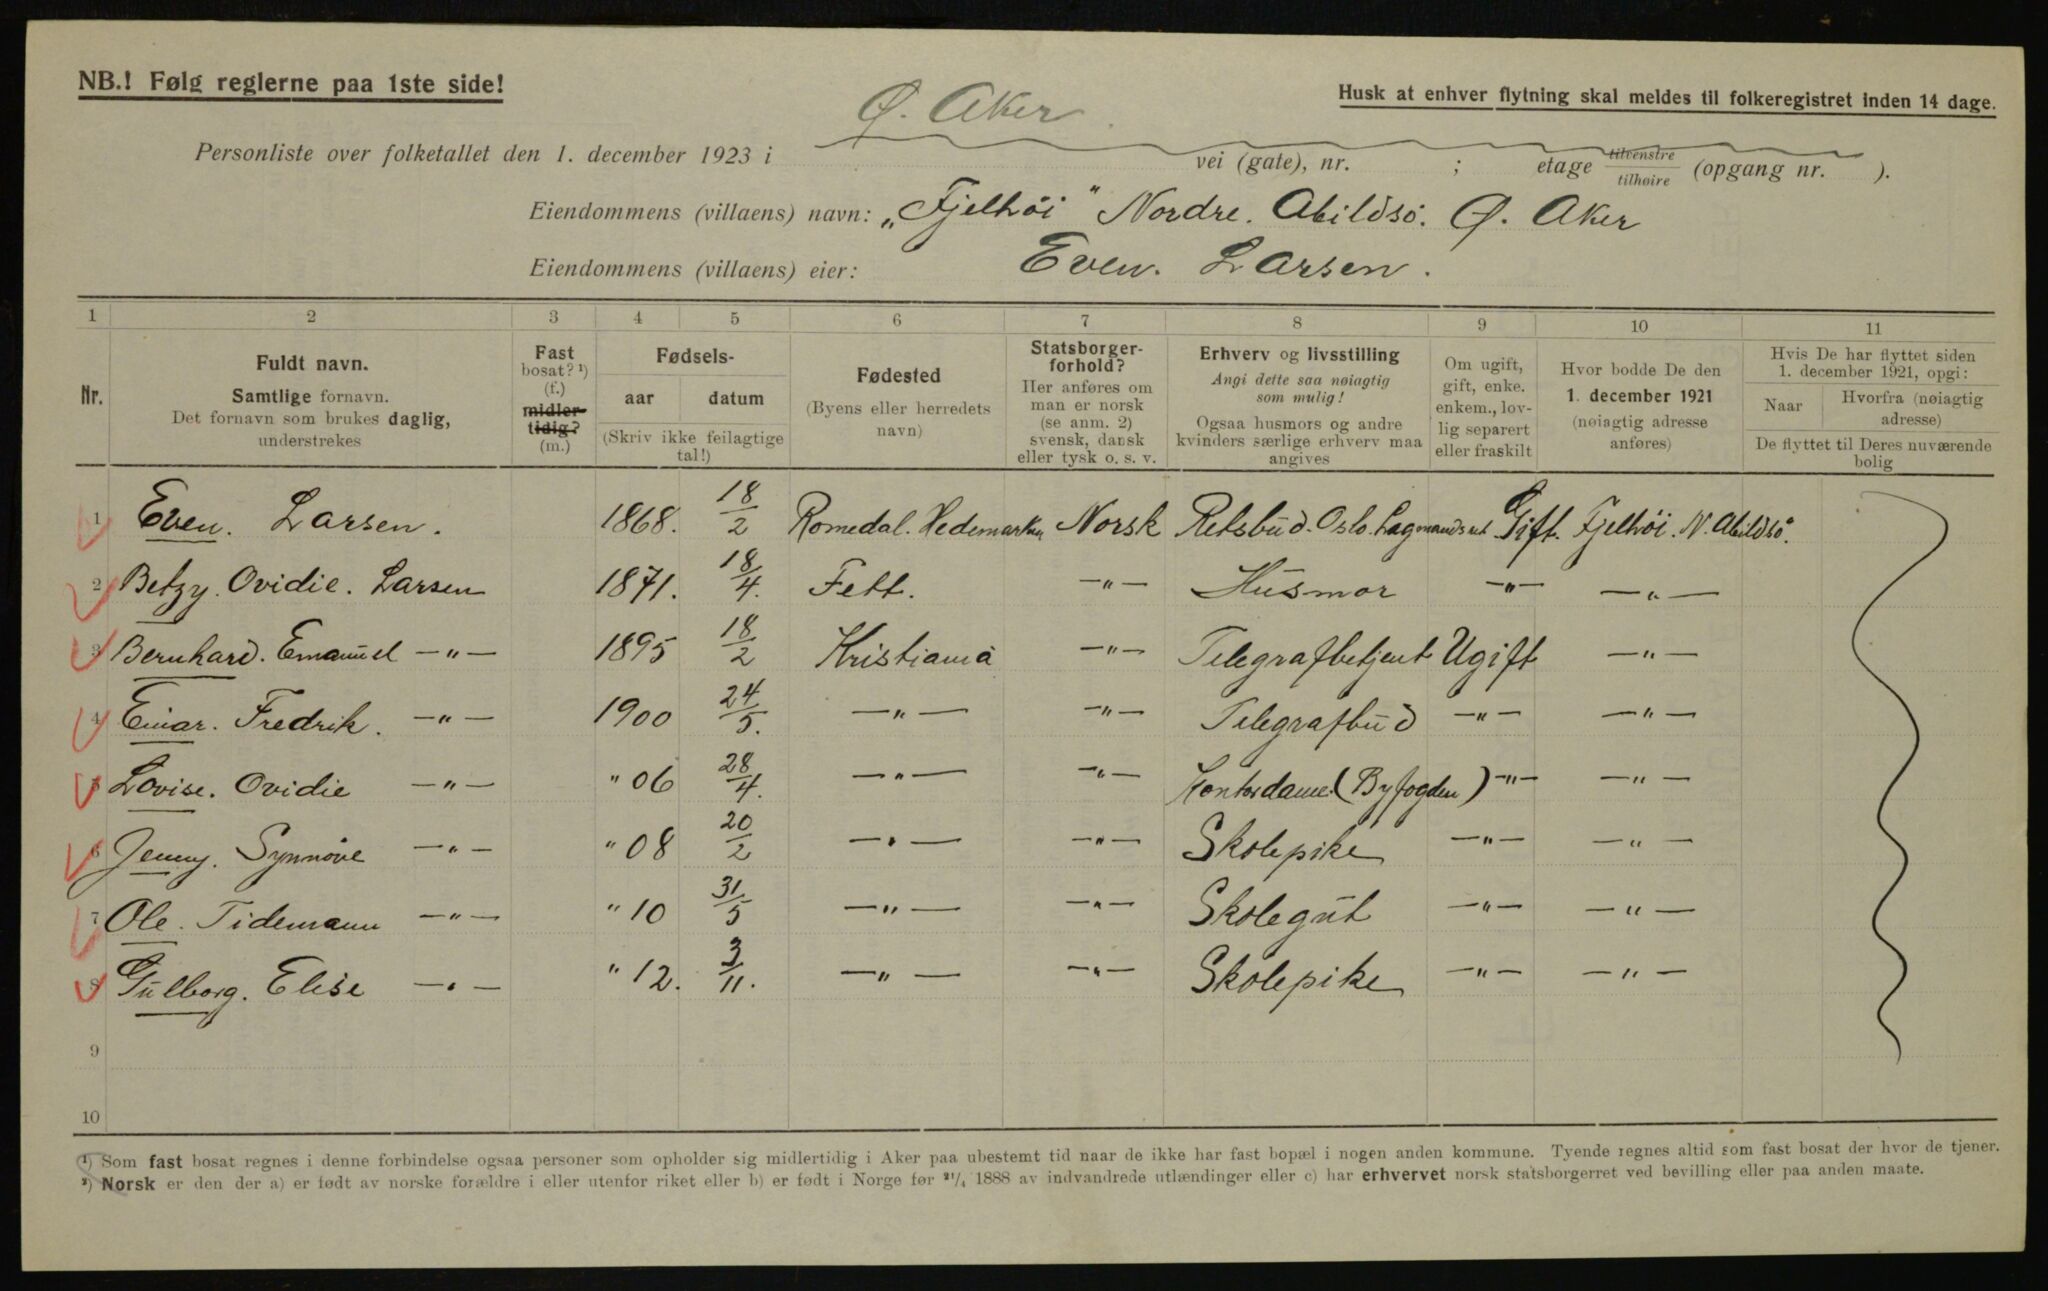 NB.! Følg reglerne paa 1ste side!
Husk at enhver flytning skal meldes til folkeregistret inden 14 dage.
Ø. Aker
Personliste over folketallet den 1. december 1923 i vei (gate), nr. ; etage tilvenstre/tilhøire (opgang nr. ).
Eiendommens (villaens) navn: „Fjelhöi" Nordre. Abildsö. Ø. Aker
Eiendommens (villaens) eier: Even. Larsen.
1 2 3 4 5 6 7 8 9 10 11
Nr. Fuldt navn. Samtlige fornavn. Det fornavn som brukes daglig, understrekes
Fast bosat? ¹) (f.) midlertidig? (m.)
Fødsels- aar datum (Skriv ikke feilagtige tal!)
Fødested (Byens eller herredets navn)
Statsborgerforhold? Her anføres om man er norsk (se anm. 2) svensk, dansk eller tysk o. s. v.
Erhverv og livsstilling Angi dette saa nøiagtig som mulig! Ogsaa husmors og andre kvinders særlige erhverv maa angives
Om ugift, gift, enke. enkem., lovlig separert eller fraskilt
Hvor bodde De den 1. december 1921 (nøiagtig adresse anføres)
Hvis De har flyttet siden 1. december 1921, opgi: Naar Hvorfra (nøiagtig adresse) De flyttet til Deres nuværende bolig
1 Even. Larsen. 1868. 18/2 Romedal. Hedemarken Norsk Retsbud. Oslo. Lagmandsret Gift. Fjelhöi. N. Abildsö.
2 Betzy. Ovidie. Larsen 1871. 18/4. Fett. —„— Husmor —„— —„—
3 Bernhard. Emanuel —„— 1895 18/2 Kristiania —„— Telegrafbetjent Ugift —„—
4 Einar. Fredrik. —„— 1900 24/5. —„— —„— Telegrafbud —„— —„—
5 Lovise. Ovidie —„— " 06 28/4. —„— —„— Kontordame (Byfogden) —„— —„—
6 Jenny. Synnöve —„— " 08 20/2 —„— —„— Skolepike —„— —„—
7 Ole. Tidemann —„— " 10 31/5 —„— —„— Skolegut —„— —„—
8 Gulborg. Elise —„— " 12. 3/11. —„— —„— Skolepike —„— —„—
9
10
¹) Som fast bosat regnes i denne forbindelse ogsaa personer som opholder sig midlertidig i Aker paa ubestemt tid naar de ikke har fast bopæl i nogen anden kommune. Tyende regnes altid som fast bosat der hvor de tjener.
²) Norsk er den der a) er født av norske forældre i eller utenfor riket eller b) er født i Norge før ²¹/₄ 1888 av indvandrede utlændinger eller c) har erhvervet norsk statsborgerret ved bevilling eller paa anden maate.